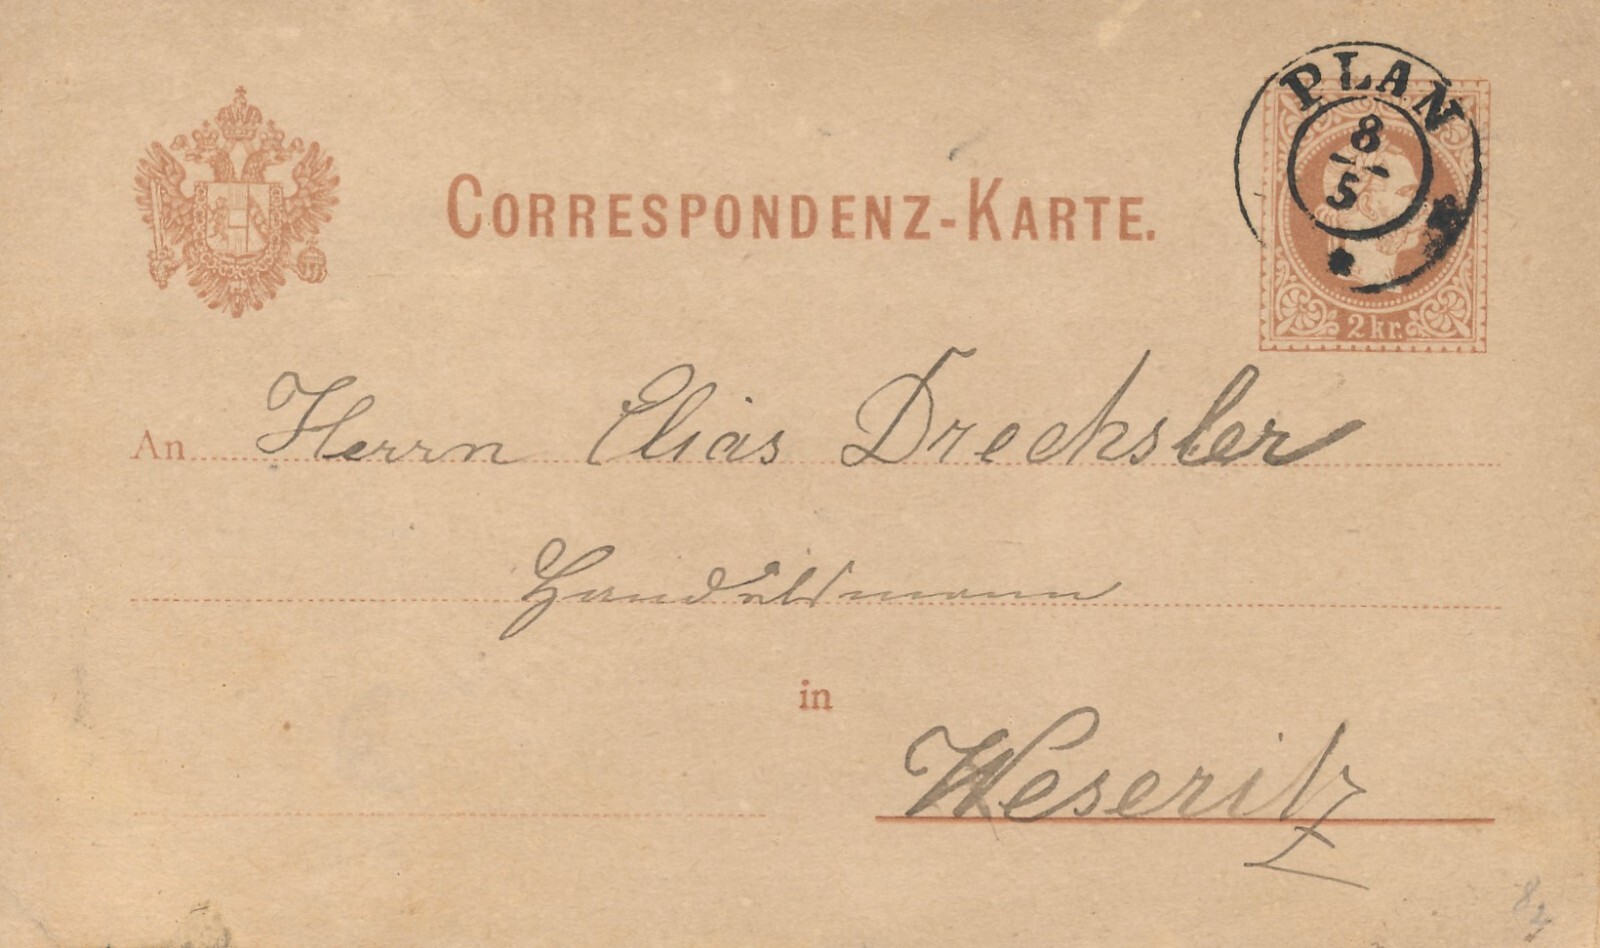 CORRESPONDENZ-KARTE.
PLAN
8
5
2 kr.
An Herrn Elias Drechsler
Handelsmann
in
Weseritz